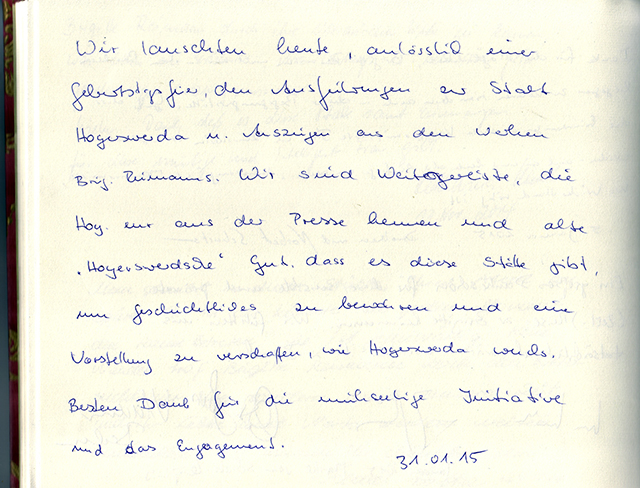 Wir lauschten heute, anlässlich einer
Geburtstagsfeier, den Ausführungen zur Stadt
Hoyerswerda u. Auszügen aus den Werken
Brig. Reimanns. Wir sind Weitgereiste, die
Hoy. nur aus der Presse kennen und alte
"Hoyerswerdsche" Gut, dass es diese Stätte gibt,
um geschichtliches zu bewahren und eine
Vorstellung zu verschaffen, wie Hoyerswerda wuchs.
Besten Dank für die mühselige Initiative
und das Engagement.
31.01.15